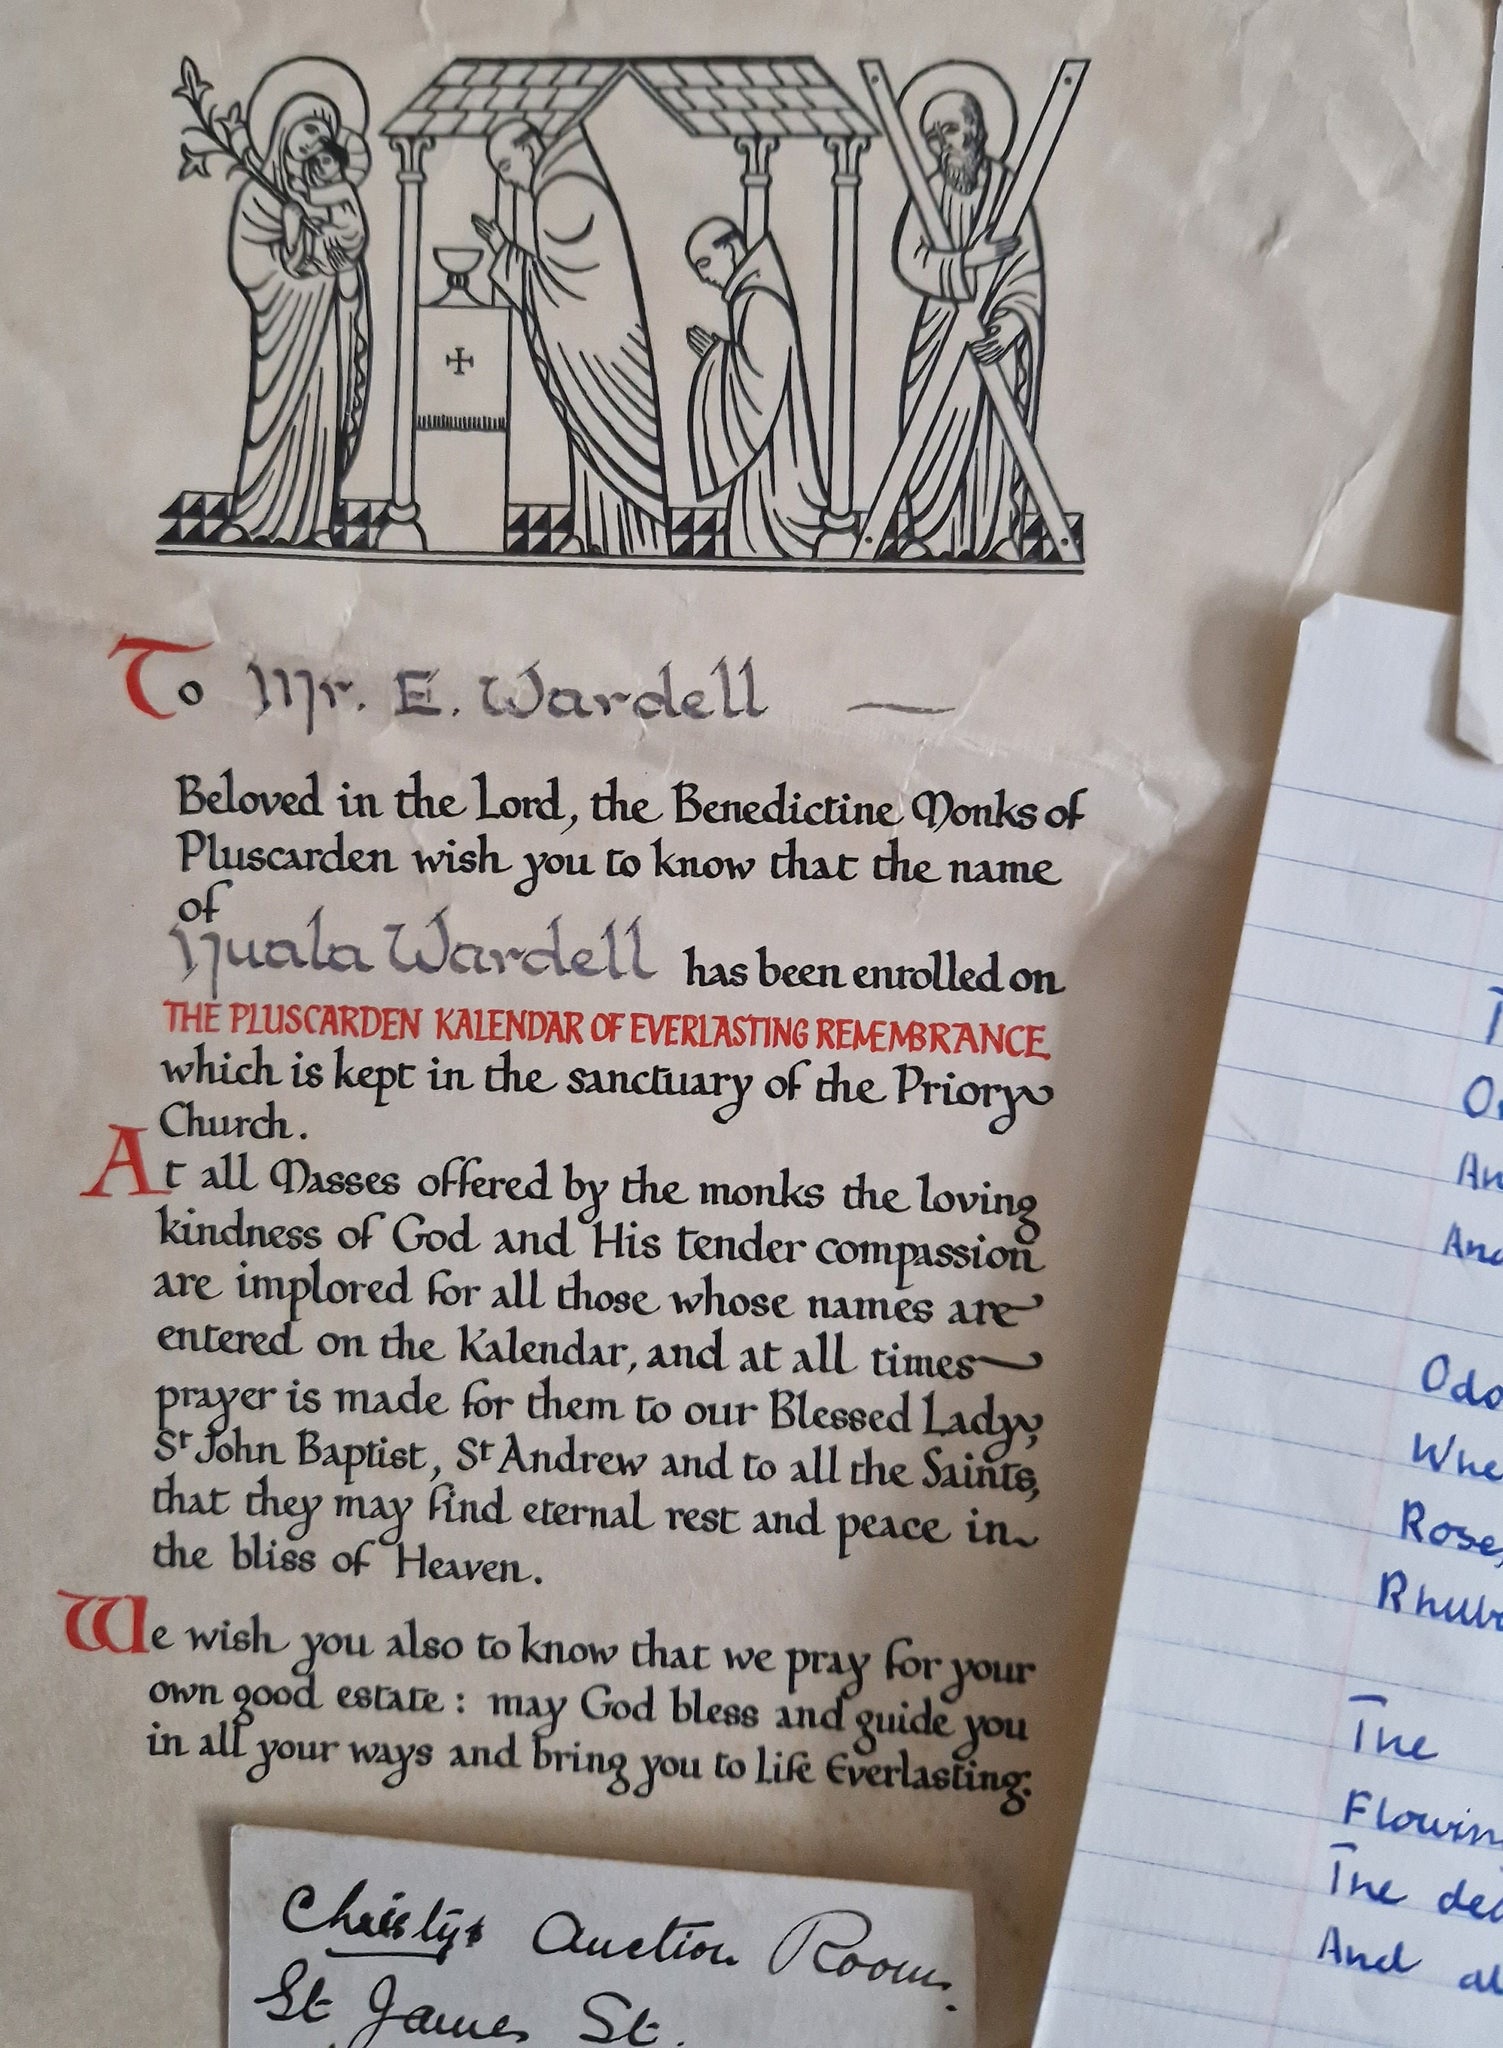 To Mr. E. Wardell
Beloved in the Lord, the Benedictine Monks of
Pluscarden wish you to know that the name
of
Nuala Wardell has been enrolled on
THE PLUSCARDEN KALENDAR OF EVERLASTING REMEMBRANCE
which is kept in the sanctuary of the Priory
Church.
At all Masses offered by the monks the loving
kindness of God and His tender compassion
are implored for all those whose names are
entered on the Kalendar, and at all times
prayer is made for them to our Blessed Lady,
St John Baptist, St Andrew and to all the Saints,
that they may find eternal rest and peace in
the bliss of Heaven.
We wish you also to know that we pray for your
own good estate: may God bless and guide you
in all your ways and bring you to life Everlasting.
Christys Auction Rooms.
St James St.
And
Rose,
The
The
And